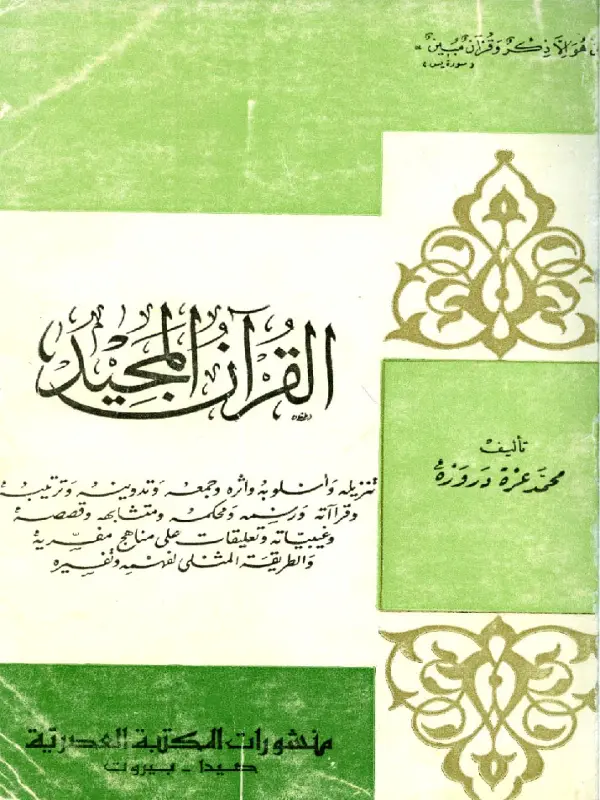 هُوَ إِلَّا ذِكْرٌ وَقُرْآنٌ مُبِينٌ »
« سورة يس »
القُرآنُ المَجِيْد
تأليف
محمّد عزة دروزة
تنزيله وأسلوبه وأثره وجمعه وتدوينه وترتيبه
وقراآته ورسمه ومحكمه ومتشابهه وقصصه
وغيبيّاته وتعليقات على مناهج مفسّريه
والطريقة المثلى لفهمه وتفسيره
منشورات المكتبة العصرية
صيدا - بيروت